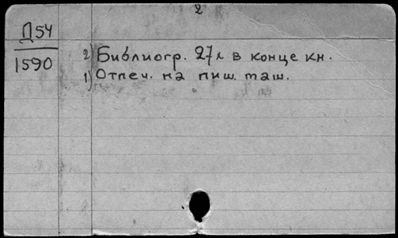 2
Д54
1590
2) Библиогр. 27л в конце кн.
1) Отпеч. на пиш. таш.